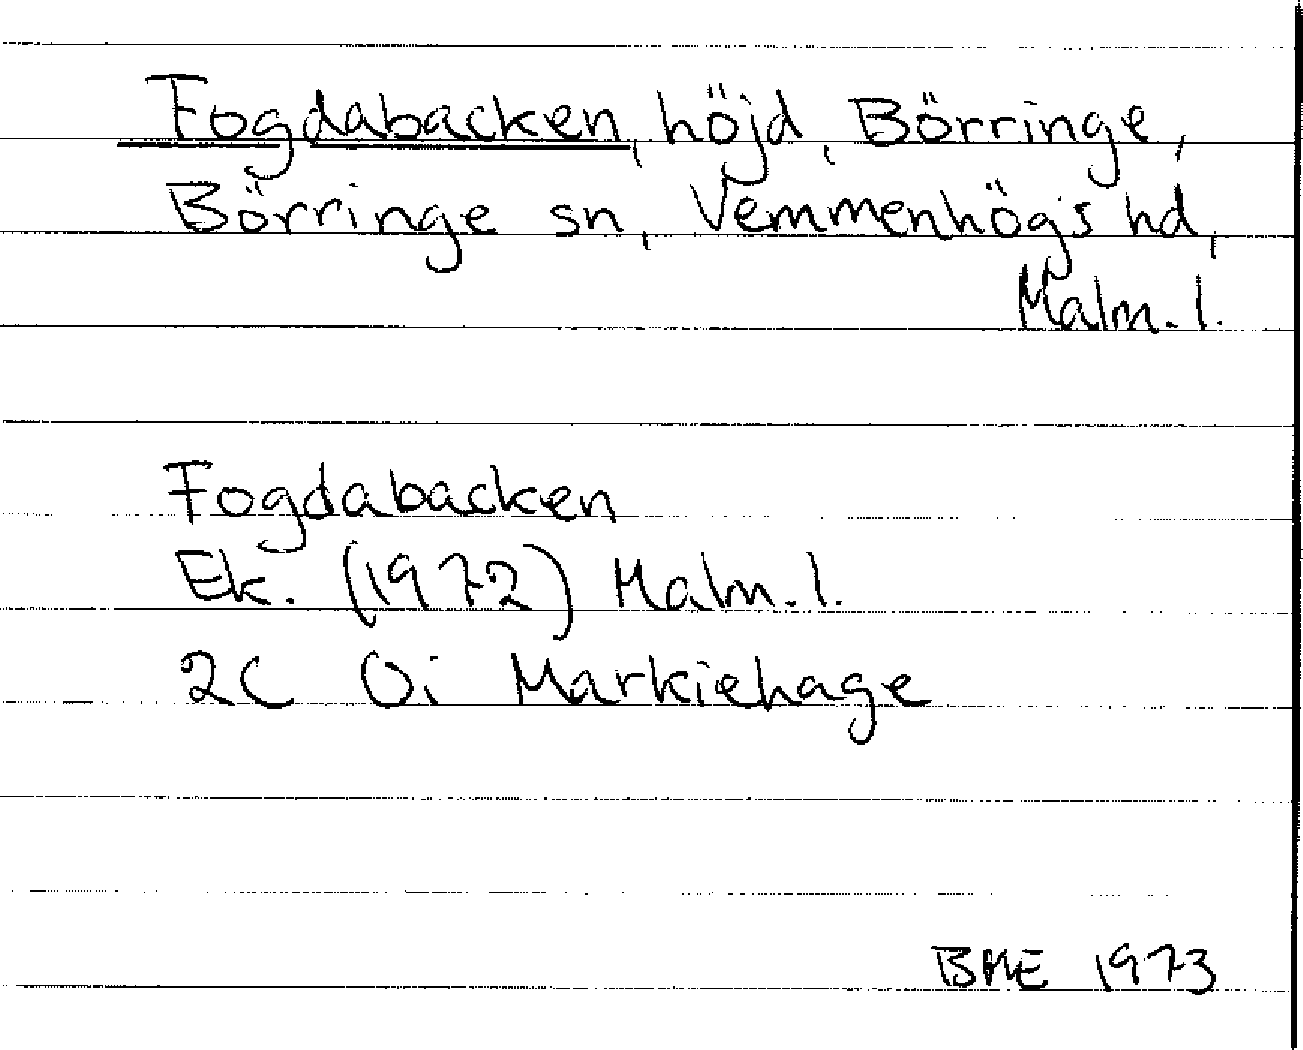 Fogdabacken, höjd, Börringe,
Börringe sn, Vemmenhögs hd,
Malm. l.
Fogdabacken
Ek. (1972) Malm. l.
2C Oi Markiehage
BME 1973